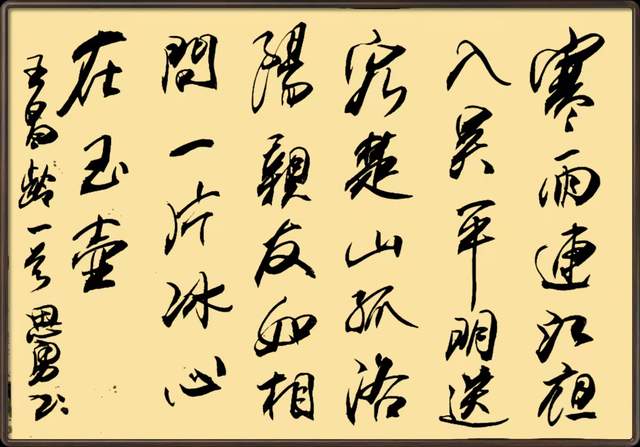 寒雨連江夜
入吴平明送
客楚山孤洛
陽親友如相
問一片冰心
在玉壶
王昌龄一首思勇书